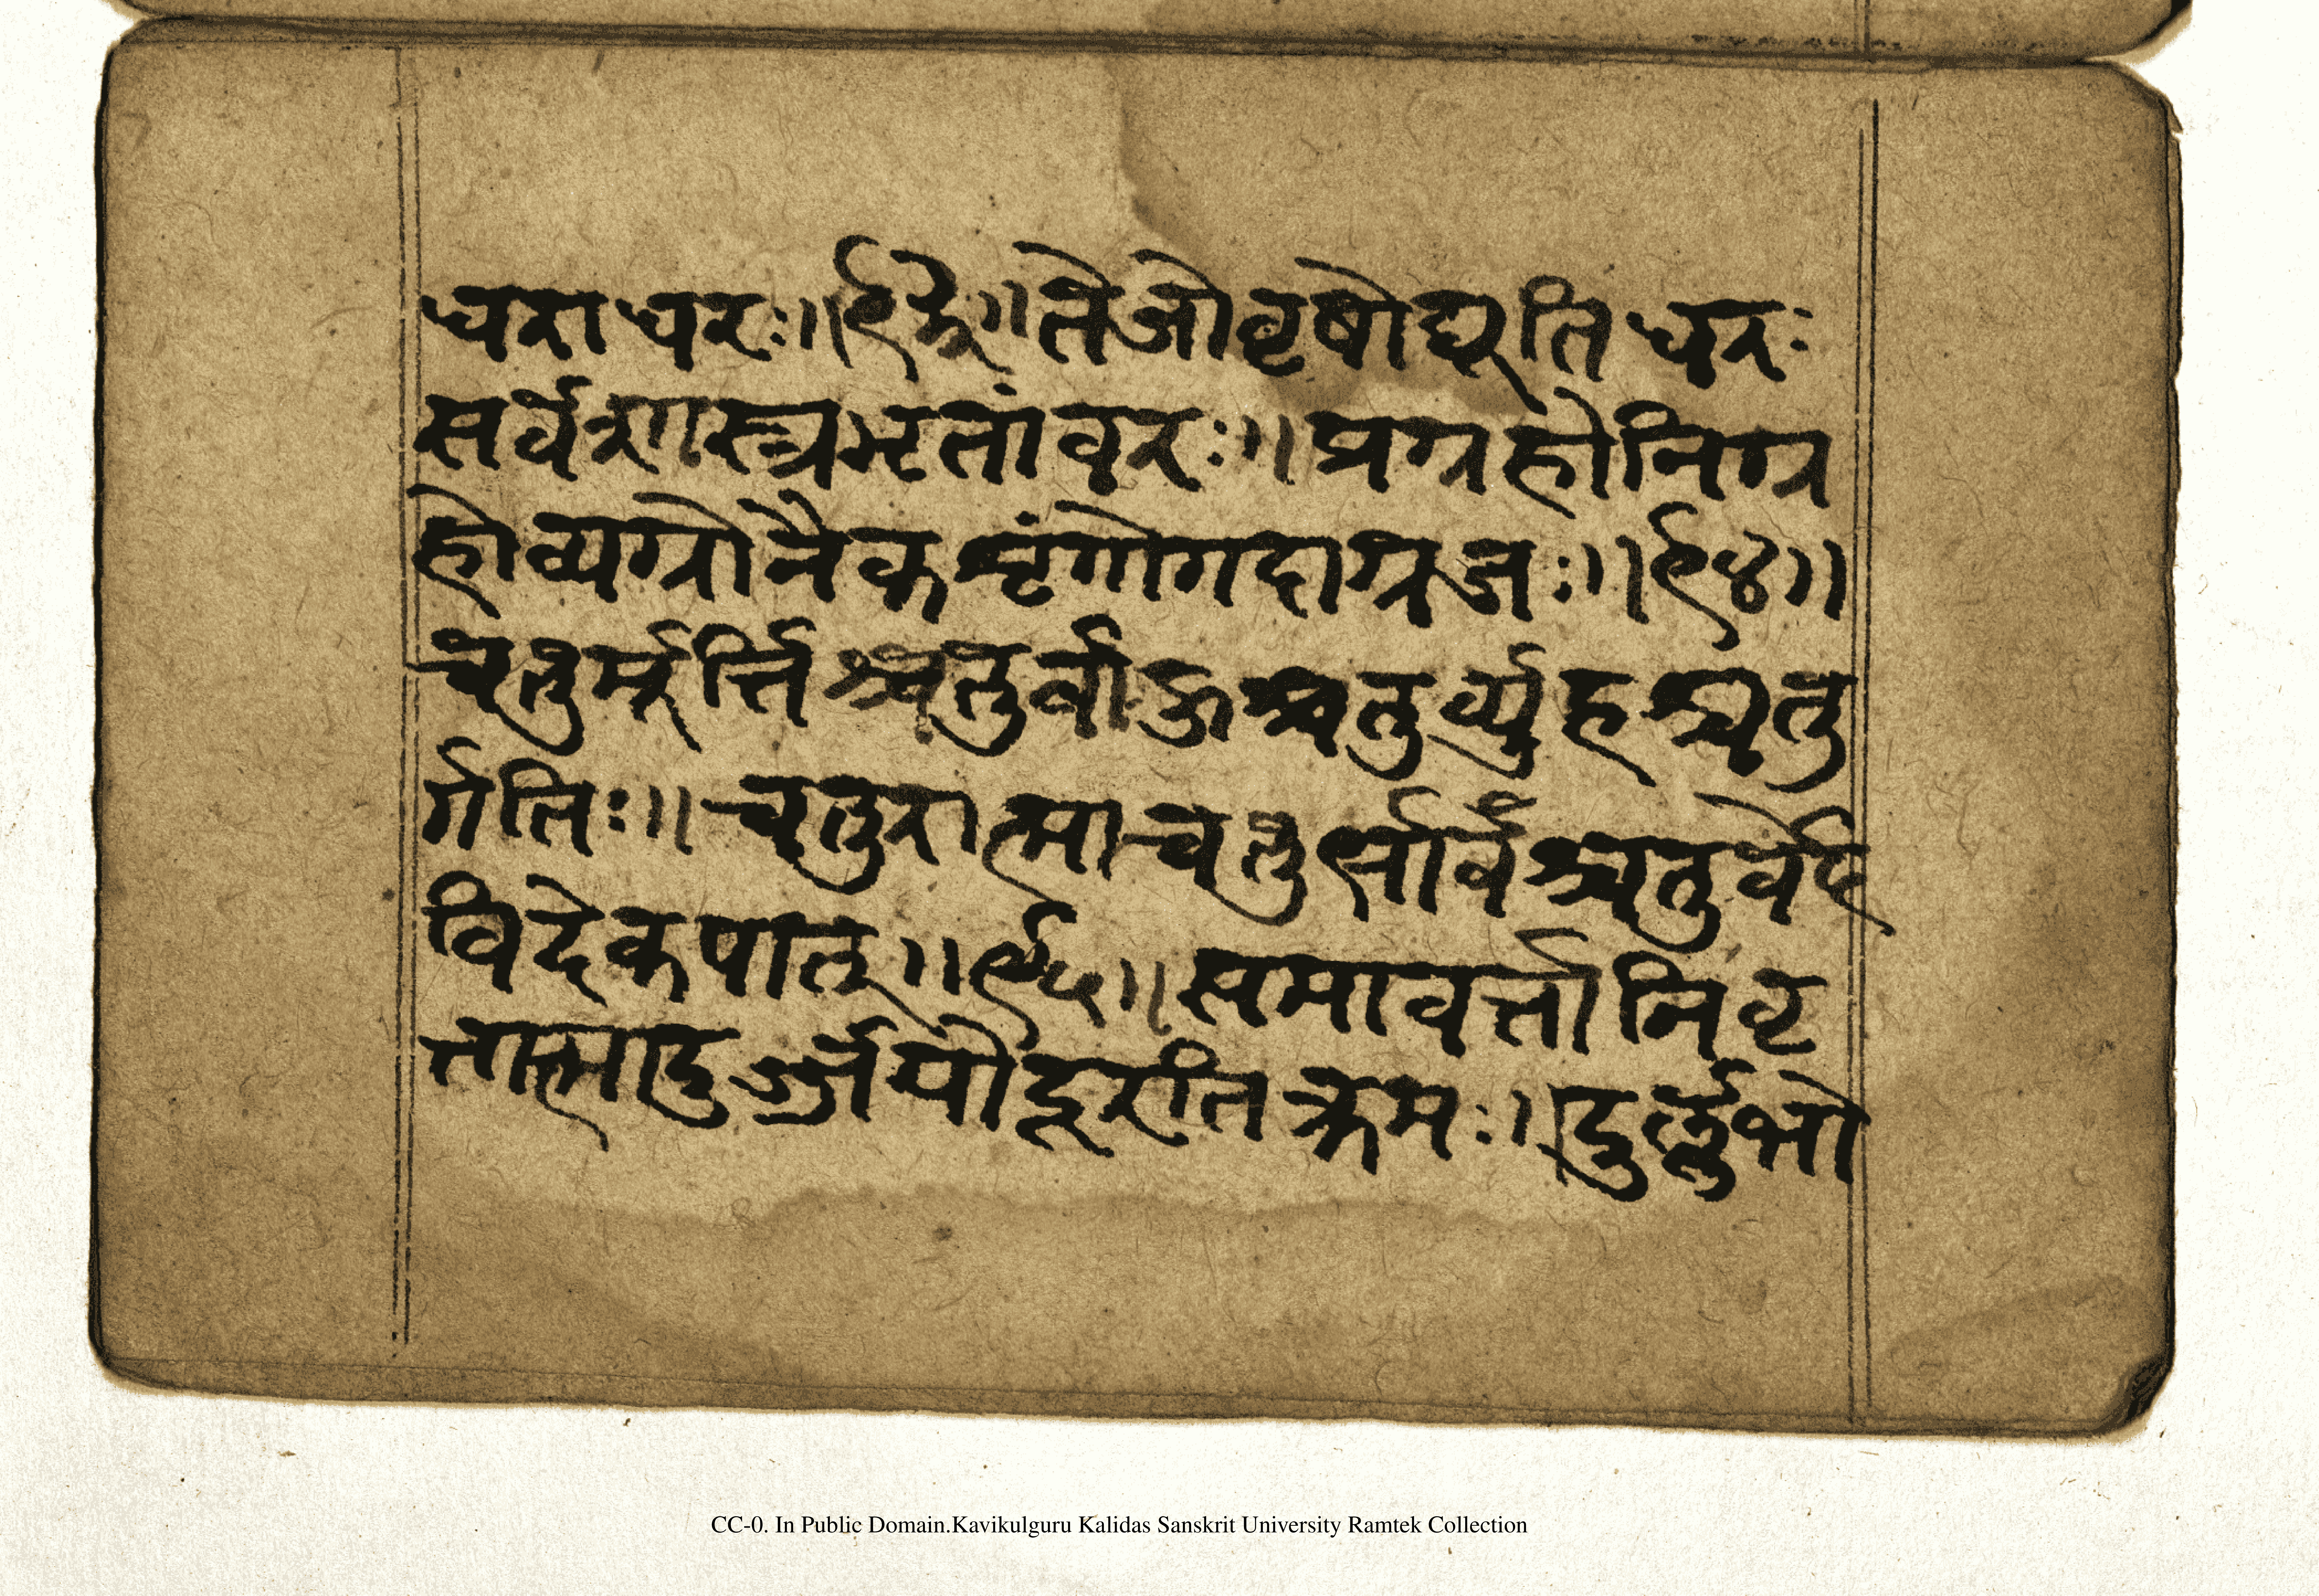 धराधरः॥९३॥तेजोवृषोद्युतिधरः
सर्वशास्त्रभृतांवरः॥प्रग्रहोनिग्र
होव्यग्रोनैकशृंगोगदाग्रजः॥९४॥
चतुर्मूर्त्तिश्चतुर्बाहुश्चतुर्व्यूहश्चतु
र्गतिः॥चतुरात्माचतुर्भावश्चतुर्वेद
विदेकपात्॥९५॥समावर्त्तोनिवृ
त्तात्मादुर्ज्जयोदूरतिक्रमः॥दुर्लभो
CC-0. In Public Domain.Kavikulguru Kalidas Sanskrit University Ramtek Collection